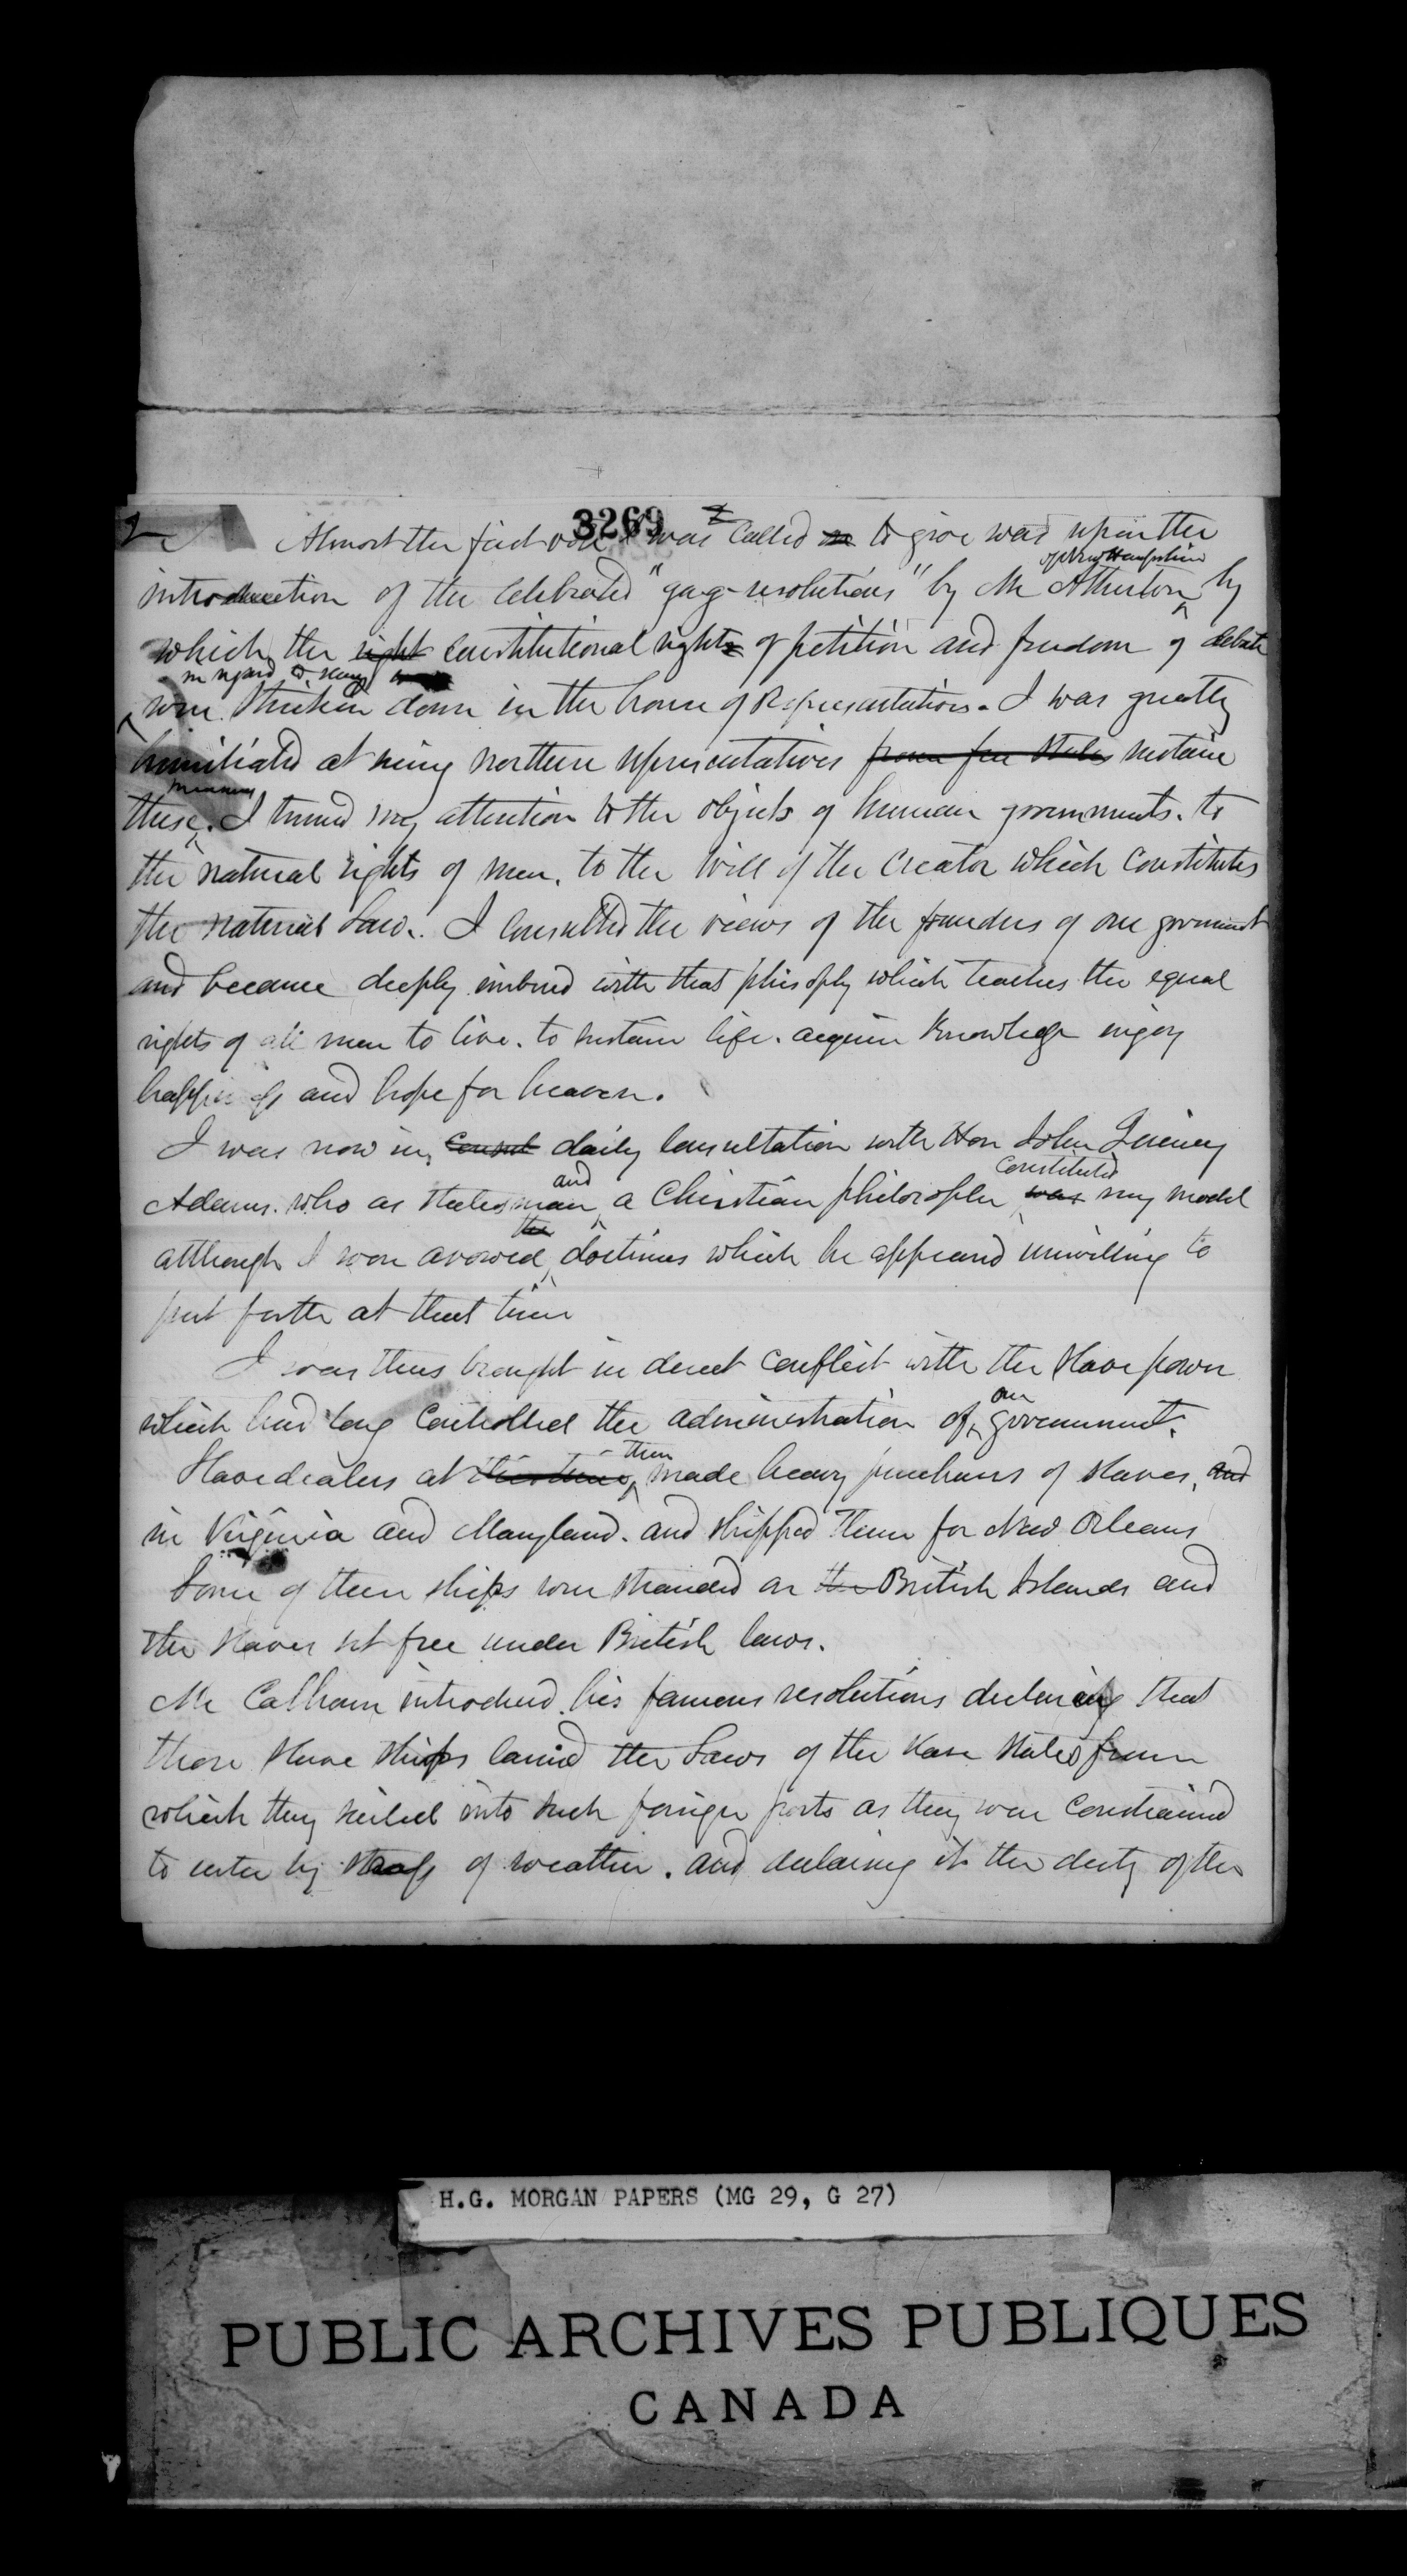 2
3269
Almost the first vote I was called to give was upon the
of New Hampshire
introduction of the celebrated "gag-resolutions" by Mr Atherton by
which the right constitutional rights of petition and freedom of debate
in regard to slavery
were stricken down in the house of Representatives. I was greatly
humiliated at seeing northern representatives from free States sustain
measures
these. I turned my attention to the objects of human governments. to
the natural rights of men. to the will of the Creator which constitutes
the natural Law. I consulted the views of the founders of our government
and became deeply imbued with that philosophy which teaches the equal
rights of all men to live. to sustain life. acquire knowledge enjoy
happiness and hope for heaven.
I was now in consul daily consultation with Hon John Quincy
and constituted
Adams. who as statesman a Christian philosopher was my model
the
although I soon avowed doctrines which he appeared unwilling to
put forth at that time
I was thus brought in direct conflict with the slave power
our
which had long controlled the administration of government.
then
Slavedealers at this time made heavy purchases of slaves, and
in Virginia and Maryland. and shipped them for New Orleans
Some of these ships were stranded on the British Islands and
the slaves set free under British laws.
Mr Calhoun introduced his famous resolutions declaring that
those slave ships carried the Laws of the slave States from
which they sailed into such foreign ports as they were constrained
to enter by stress of weather. and declaring it the duty of the
H.G. MORGAN PAPERS (MG 29, G 27)
PUBLIC ARCHIVES PUBLIQUES
CANADA